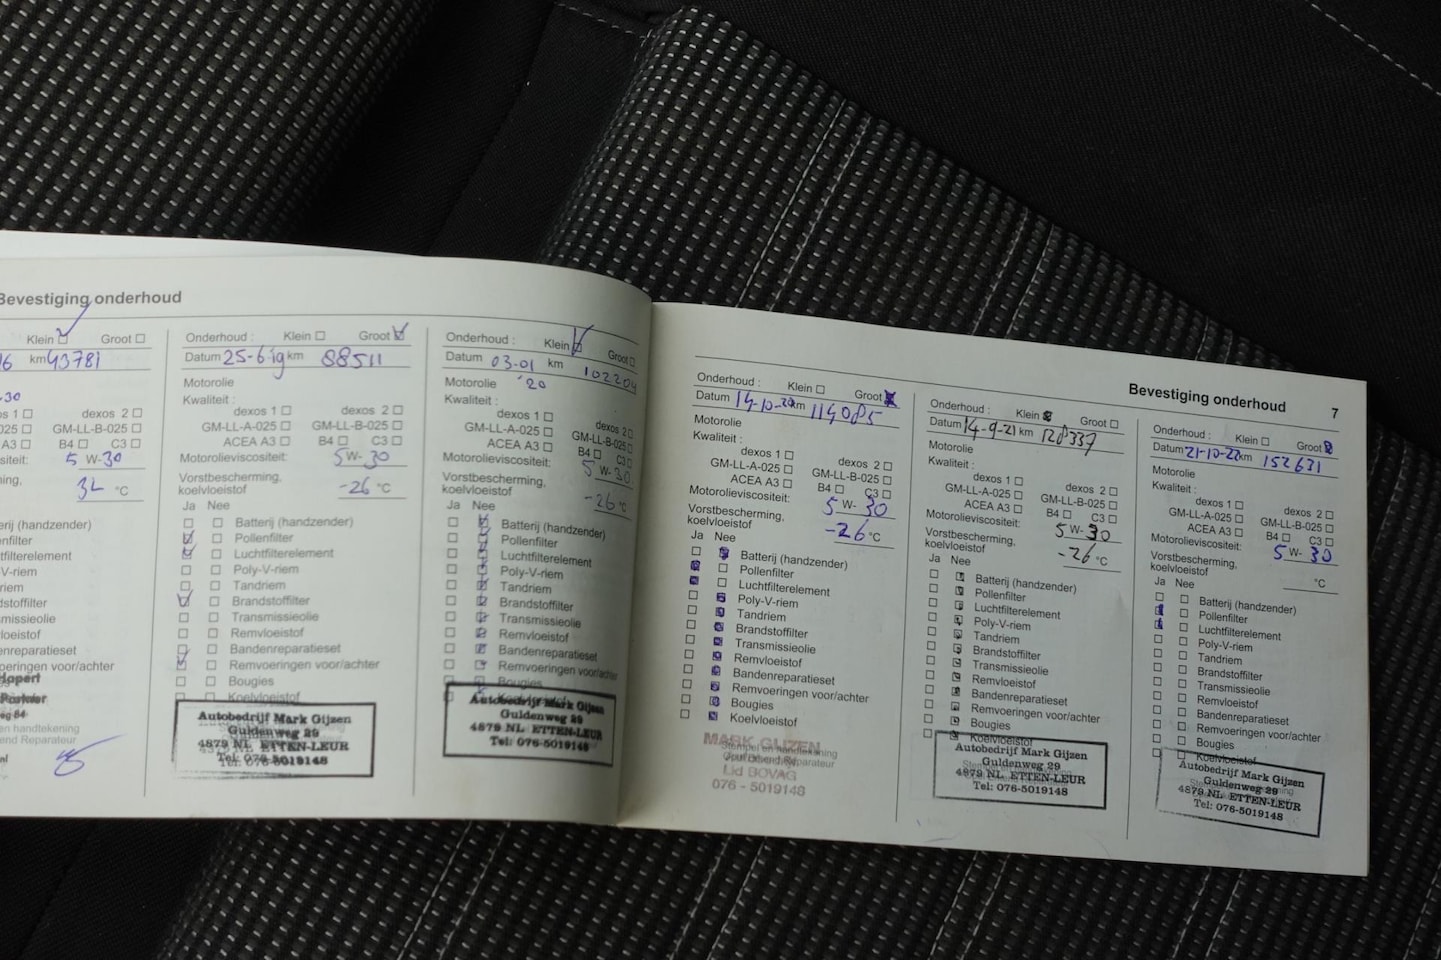 Bevestiging onderhoud
Klein Groot
16 km 43781
-30
s 1 dexos 2
025 GM-LL-B-025
A3 B4 C3
siteit: 5 W-30
ning, 34 °C
erij (handzender)
nfilter
tfilterelement
V-riem
riem
dstoffilter
smissieolie
loeistof
enreparatieset
oeringen voor/achter
en handtekening
end Reparateur
Onderhoud : Klein Groot
Datum 25-6-19 km 88511
Motorolie
Kwaliteit :
dexos 1 dexos 2
GM-LL-A-025 GM-LL-B-025
ACEA A3 B4 C3
Motorolieviscositeit: 5 W-30
Vorstbescherming,
koelvloeistof -26 °C
Ja Nee
Batterij (handzender)
Pollenfilter
Luchtfilterelement
Poly-V-riem
Tandriem
Brandstoffilter
Transmissieolie
Remvloeistof
Bandenreparatieset
Remvoeringen voor/achter
Bougies
Koelvloeistof
Autobedrijf Mark Gijzen
Guldenweg 29
4879 NL ETTEN-LEUR
Tel: 076-5019148
Onderhoud : Klein Groot
Datum 03-01 km 102204
Motorolie '20
Kwaliteit :
dexos 1 dexos 2
GM-LL-A-025 GM-LL-B-025
ACEA A3 B4 C3
Motorolieviscositeit: 5 W-30
Vorstbescherming,
koelvloeistof -26 °C
Ja Nee
Batterij (handzender)
Pollenfilter
Luchtfilterelement
Poly-V-riem
Tandriem
Brandstoffilter
Transmissieolie
Remvloeistof
Bandenreparatieset
Remvoeringen voor/achter
Bougies
Autobedrijf Mark Gijzen
Guldenweg 29
4879 NL ETTEN-LEUR
Tel: 076-5019148
Bevestiging onderhoud 7
Onderhoud : Klein Groot
Datum 14-10-20 km 114085
Motorolie
Kwaliteit :
dexos 1 dexos 2
GM-LL-A-025 GM-LL-B-025
ACEA A3 B4 C3
Motorolieviscositeit: 5 W- 30
Vorstbescherming,
koelvloeistof -26 °C
Ja Nee
Batterij (handzender)
Pollenfilter
Luchtfilterelement
Poly-V-riem
Tandriem
Brandstoffilter
Transmissieolie
Remvloeistof
Bandenreparatieset
Remvoeringen voor/achter
Bougies
Koelvloeistof
MARK GIJZEN
Stempel en handtekening
Reparateur
Lid BOVAG
076 - 5019148
Onderhoud : Klein Groot
Datum 14-9-21 km 128337
Motorolie
Kwaliteit :
dexos 1 dexos 2
GM-LL-A-025 GM-LL-B-025
ACEA A3 B4 C3
Motorolieviscositeit: 5 W- 30
Vorstbescherming,
koelvloeistof -26 °C
Ja Nee
Batterij (handzender)
Pollenfilter
Luchtfilterelement
Poly-V-riem
Tandriem
Brandstoffilter
Transmissieolie
Remvloeistof
Bandenreparatieset
Remvoeringen voor/achter
Bougies
Koelvloeistof
Autobedrijf Mark Gijzen
Guldenweg 29
4879 NL ETTEN-LEUR
Tel: 076-5019148
Onderhoud : Klein Groot
Datum 21-10-22 km 152631
Motorolie
Kwaliteit :
dexos 1 dexos 2
GM-LL-A-025 GM-LL-B-025
ACEA A3 B4 C3
Motorolieviscositeit: 5 W- 30
Vorstbescherming,
koelvloeistof °C
Ja Nee
Batterij (handzender)
Pollenfilter
Luchtfilterelement
Poly-V-riem
Tandriem
Brandstoffilter
Transmissieolie
Remvloeistof
Bandenreparatieset
Remvoeringen voor/achter
Bougies
Koelvloeistof
Autobedrijf Mark Gijzen
Guldenweg 29
4879 NL ETTEN-LEUR
Tel: 076-5019148